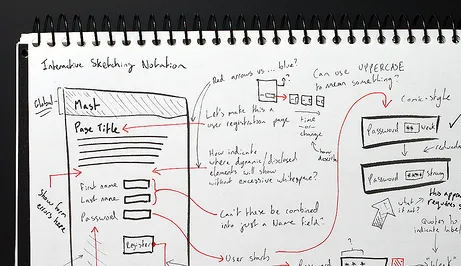 Interactive Sketching Notation
Global
Mast
Page Title
First name
Last name
Password
Register
Show form
errors here
Red arrows vs ... blue?
Let's make this a
user registration page
How indicate
where dynamic/disclosed
elements will show
without excessive whitespace?
Can't these be combined
into just a Name field"
User starts
?
time
or
change
how describe
Can use UPPERCASE
to mean something?
Comic-style
Password ** weak
Password **** strong
what
if not?
this app
requires
Quotes to
indicate
label
?
Password ***